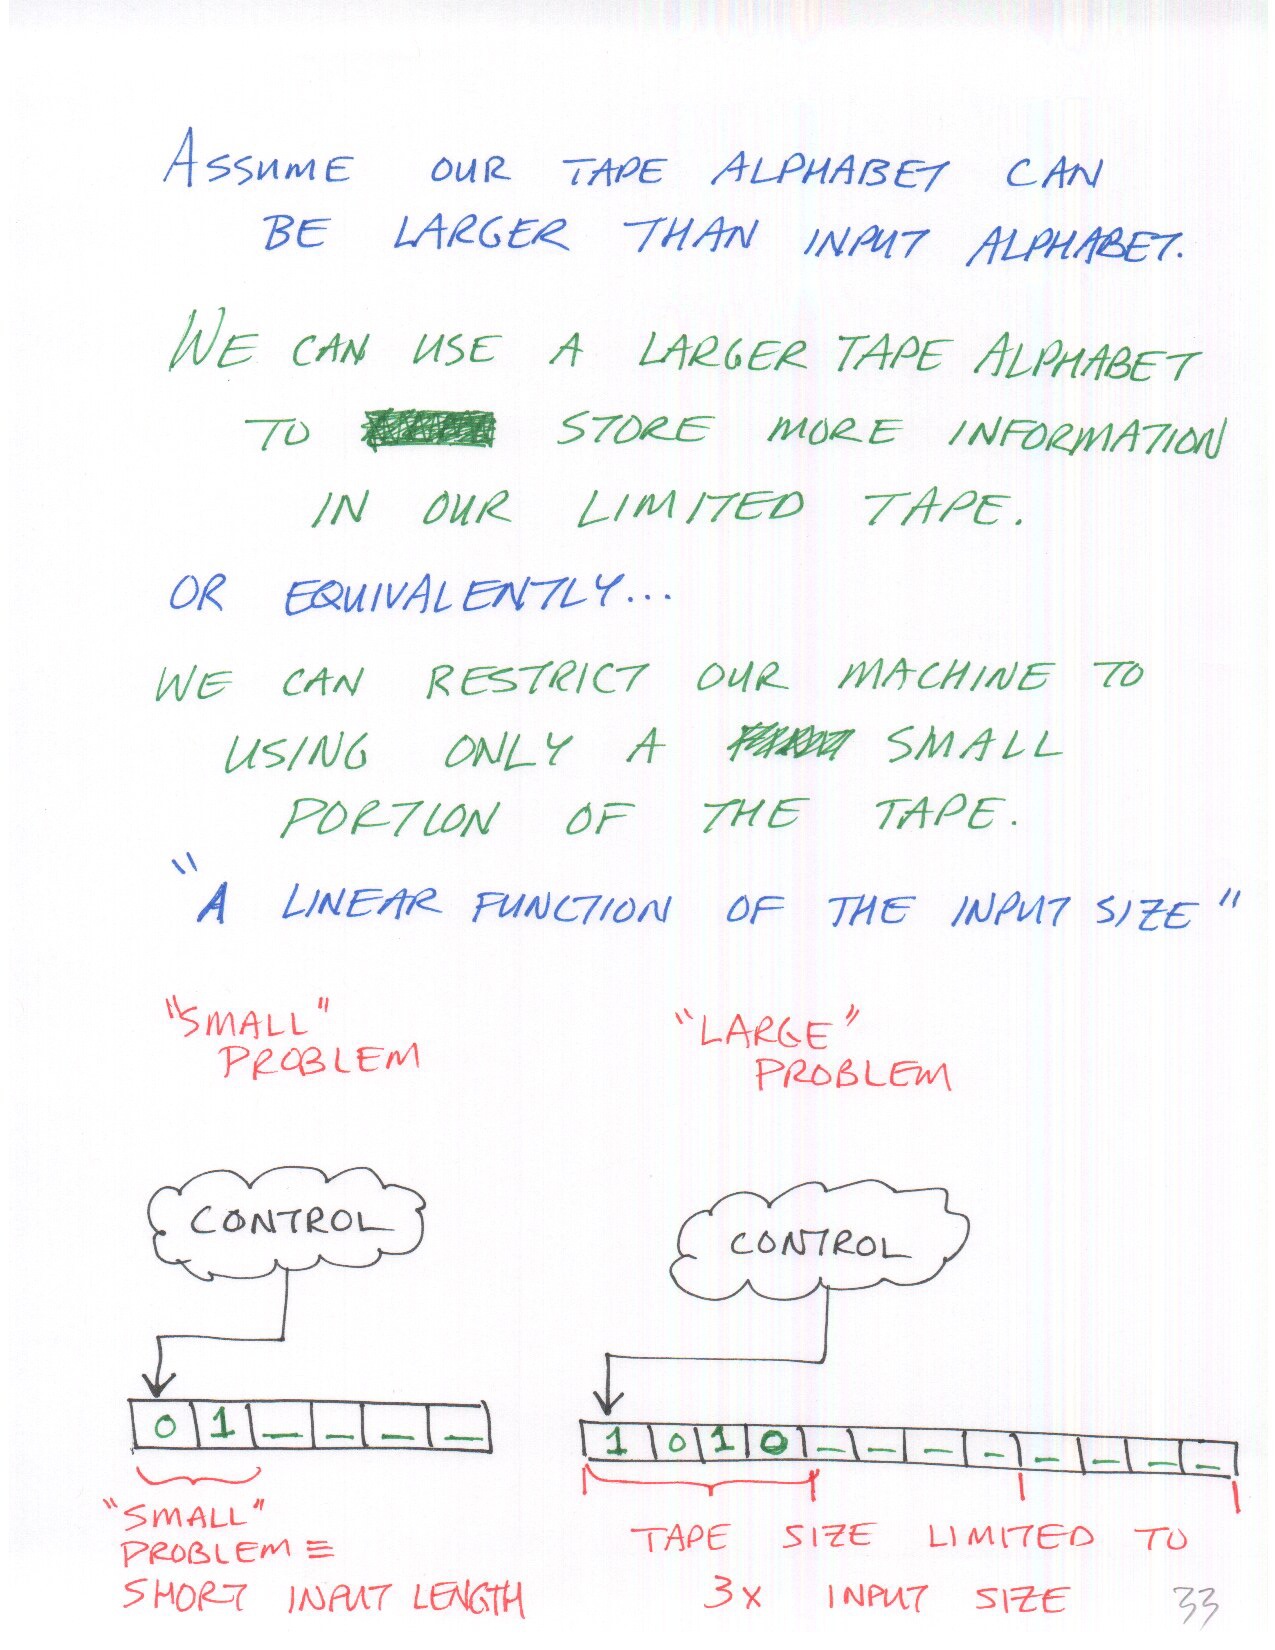 ASSUME OUR TAPE ALPHABET CAN
BE LARGER THAN INPUT ALPHABET.
WE CAN USE A LARGER TAPE ALPHABET
TO STORE MORE INFORMATION
IN OUR LIMITED TAPE.
OR EQUIVALENTLY...
WE CAN RESTRICT OUR MACHINE TO
USING ONLY A SMALL
PORTION OF THE TAPE.
"A LINEAR FUNCTION OF THE INPUT SIZE"
"SMALL"
PROBLEM
"LARGE"
PROBLEM
CONTROL
CONTROL
0 1 _ _ _ _
1 0 1 0 _ _ _ _ _ _ _ _
"SMALL"
PROBLEM ≡
SHORT INPUT LENGTH
TAPE SIZE LIMITED TO
3x INPUT SIZE
33